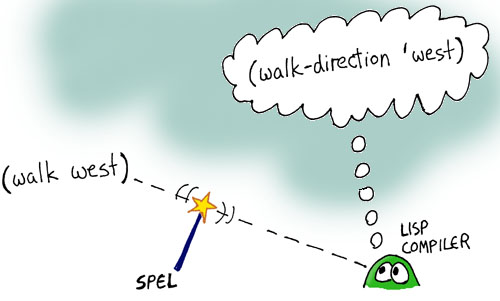 (walk-direction 'west)
(walk west)
LISP
COMPILER
SPEL